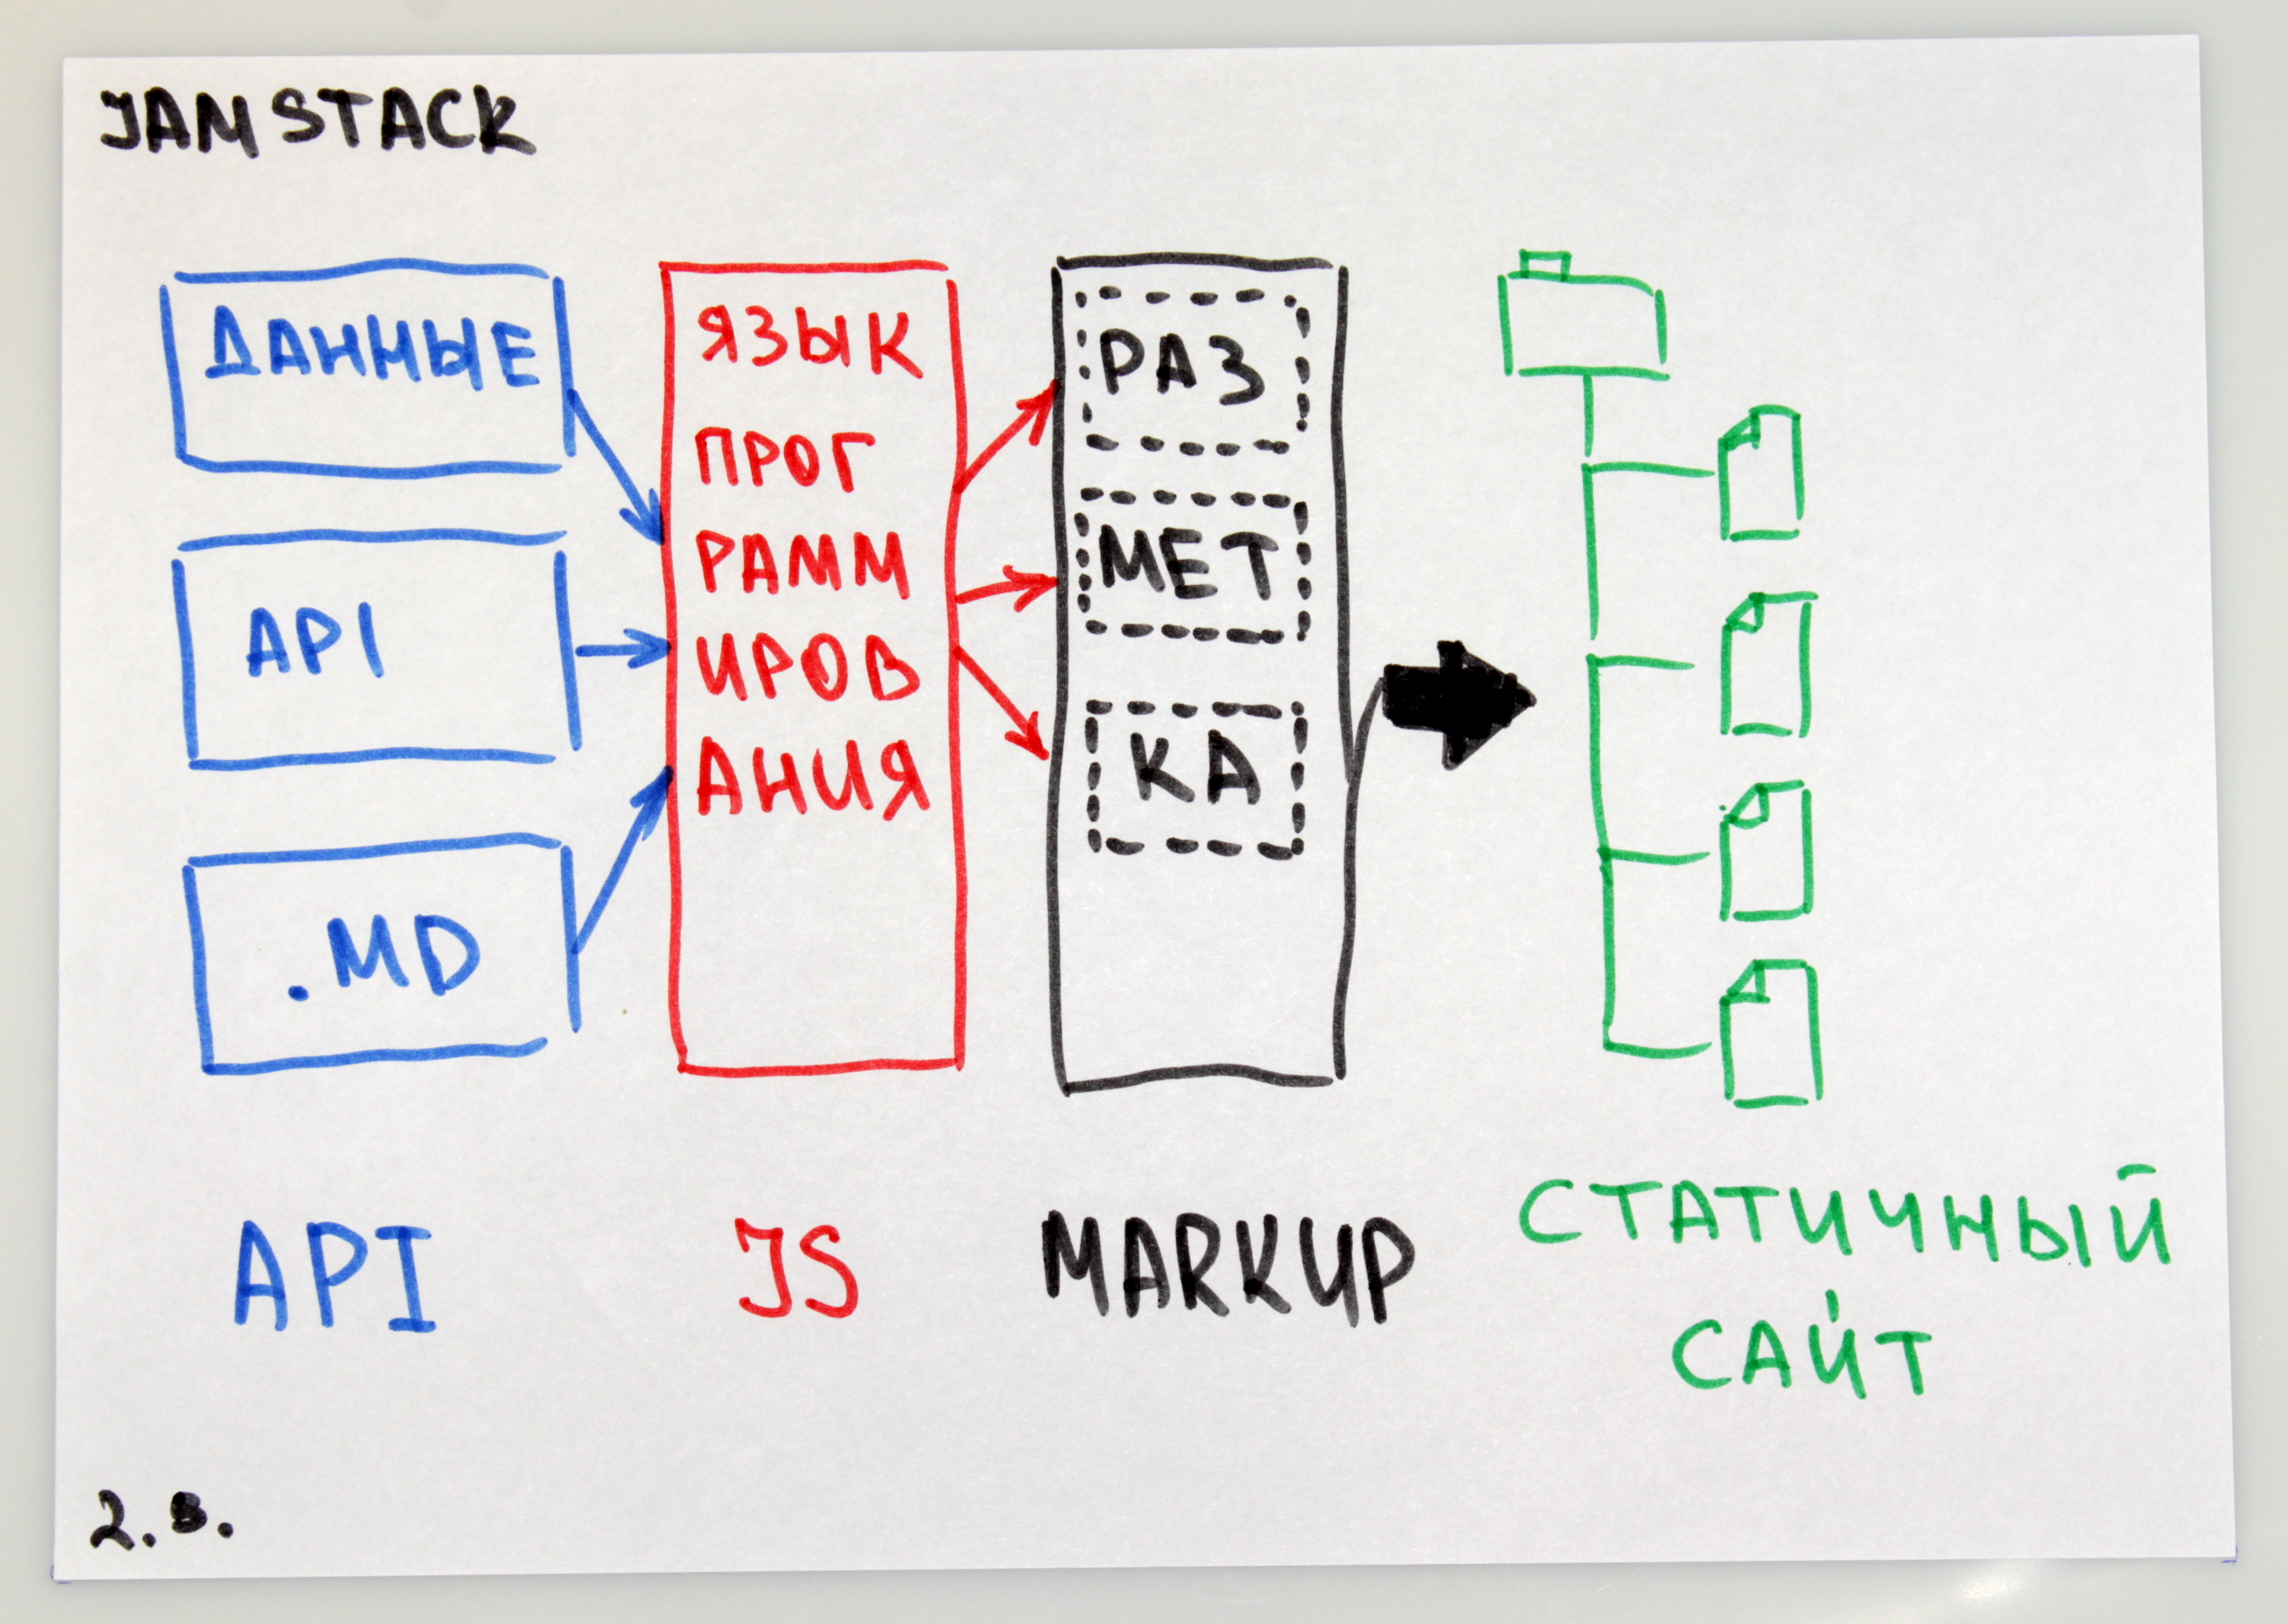 JAMSTACK
ДАННЫЕ
API
.MD
ЯЗЫК
ПРОГ
РАММ
ИРОВ
АНИЯ
РАЗ
МЕТ
КА
API
JS
MARKUP
СТАТИЧНЫЙ
САЙТ
2.в.